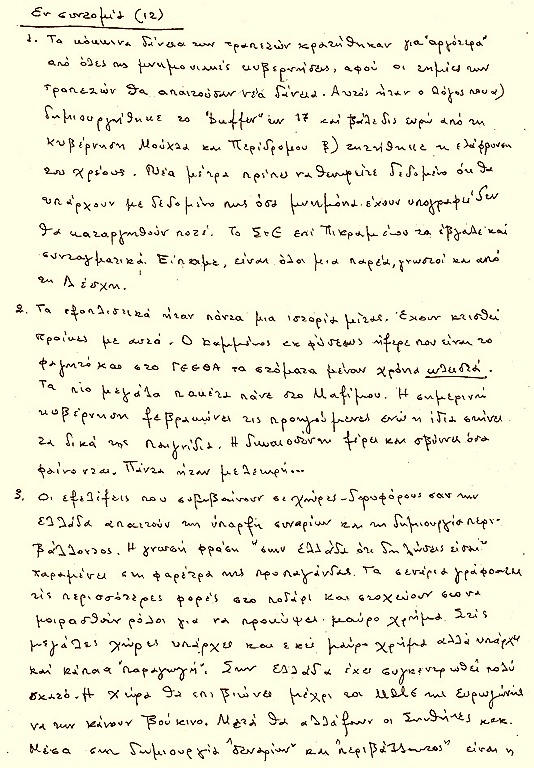 Εν συντομία (12)
1. Τα κόκκινα δάνεια των τραπεζών κρατήθηκαν για "αργότερα"
από όλες τις μνημονιακές κυβερνήσεις, αφού οι ζημίες των
τραπεζών θα απαιτούσαν νέα δάνεια. Αυτός ήταν ο λόγος που α)
δημιουργήθηκε το "buffer" των 17 και βάλε δις ευρώ από τη
κυβέρνηση Μούχλα και Περίδρομου β) ζητήθηκε η ελάφρυνση
του χρέους. Νέα μέτρα πρέπει να θεωρείτε δεδομένο ότι θα
υπάρχουν με δεδομένο πως όσα μνημόνια έχουν υπογραφεί δεν
θα καταργηθούν ποτέ. Το ΣτΕ επί Πικραμένου τα έβγαλε και
συνταγματικά. Είπαμε, είναι όλοι μια παρέα, γνωστοί και από
τη Λέσχη.
2. Τα εξοπλιστικά ήταν πάντα μια ιστορία μίζας. Έχουν κτισθεί
προίκες με αυτά. Ο Καμμένος εκ φύσεως ήξερε που είναι το
φαγητό και στο ΓΕΕΘΑ τα στόματα μένουν χρόνια κλειστά.
Τα πιο μεγάλα πακέτα πάνε στο Μαξίμου. Η σημερινή
κυβέρνηση ξεβρακώνει τις προηγούμενες ενώ η ίδια στήνει
τα δικά της παιγνίδια. Η δικαιοσύνη ξέρει και σβύνει όσα
φαίνονται. Πάντα ήταν μελετηρή...
3. Οι εξελίξεις που συμβαίνουν σε χώρες-δορυφόρους σαν την
Ελλάδα απαιτούν την ύπαρξη σεναρίων και τη δημιουργία περι-
βάλλοντος. Η γνωστή φράση "στην Ελλάδα ότι δηλώσεις είσαι"
παραμένει στη φαρέτρα της προπαγάνδας. Τα σενάρια γράφονται
τις περισσότερες φορές στο ποδάρι και στοχεύουν στο να
μοιρασθούν ρόλοι για να προκύψει μαύρο χρήμα. Στις
μεγάλες χώρες υπάρχει και εκεί μαύρο χρήμα αλλά υπάρχει
και κάποια "παραγωγή". Στην Ελλάδα έχει συγκεντρωθεί πολύ
σκατό. Η χώρα θα επιβιώνει μέχρι τα της Ευρωζώνης
να την κάνουν βούκινο. Μετά θα αλλάξουν οι συνθήκες κεκ.
Μέσα στη δημιουργία "σεναρίων" και "περιβάλλοντος" είναι η